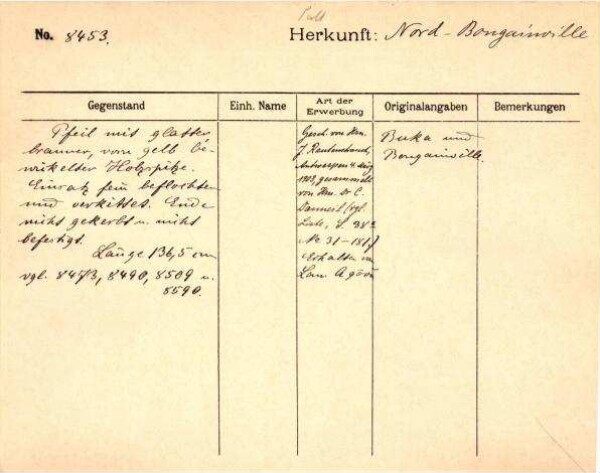 No. 8453.
Herkunft: Nord-Bougainville
Gegenstand
Einh. Name
Art der
Erwerbung
Originalangaben
Bemerkungen
Pfeil mit glatter
brauner, vorn gelb be-
wickelter Holzspitze.
Einsatz fein beflochten
und verkittet. Ende
nicht gekerbt u. nicht
befestigt.
Länge 136,5 cm
vgl. 8473, 8490, 8509 u.
8590.
Gesch. von Hrn.
J. Rautenstrauch,
Antwerpen 4. März
1903, gesammelt
von Hrn. Dr C.
(vgl.
Liste, S. 383
No 31-181)
Erhalten
Buka und
Bougainville.